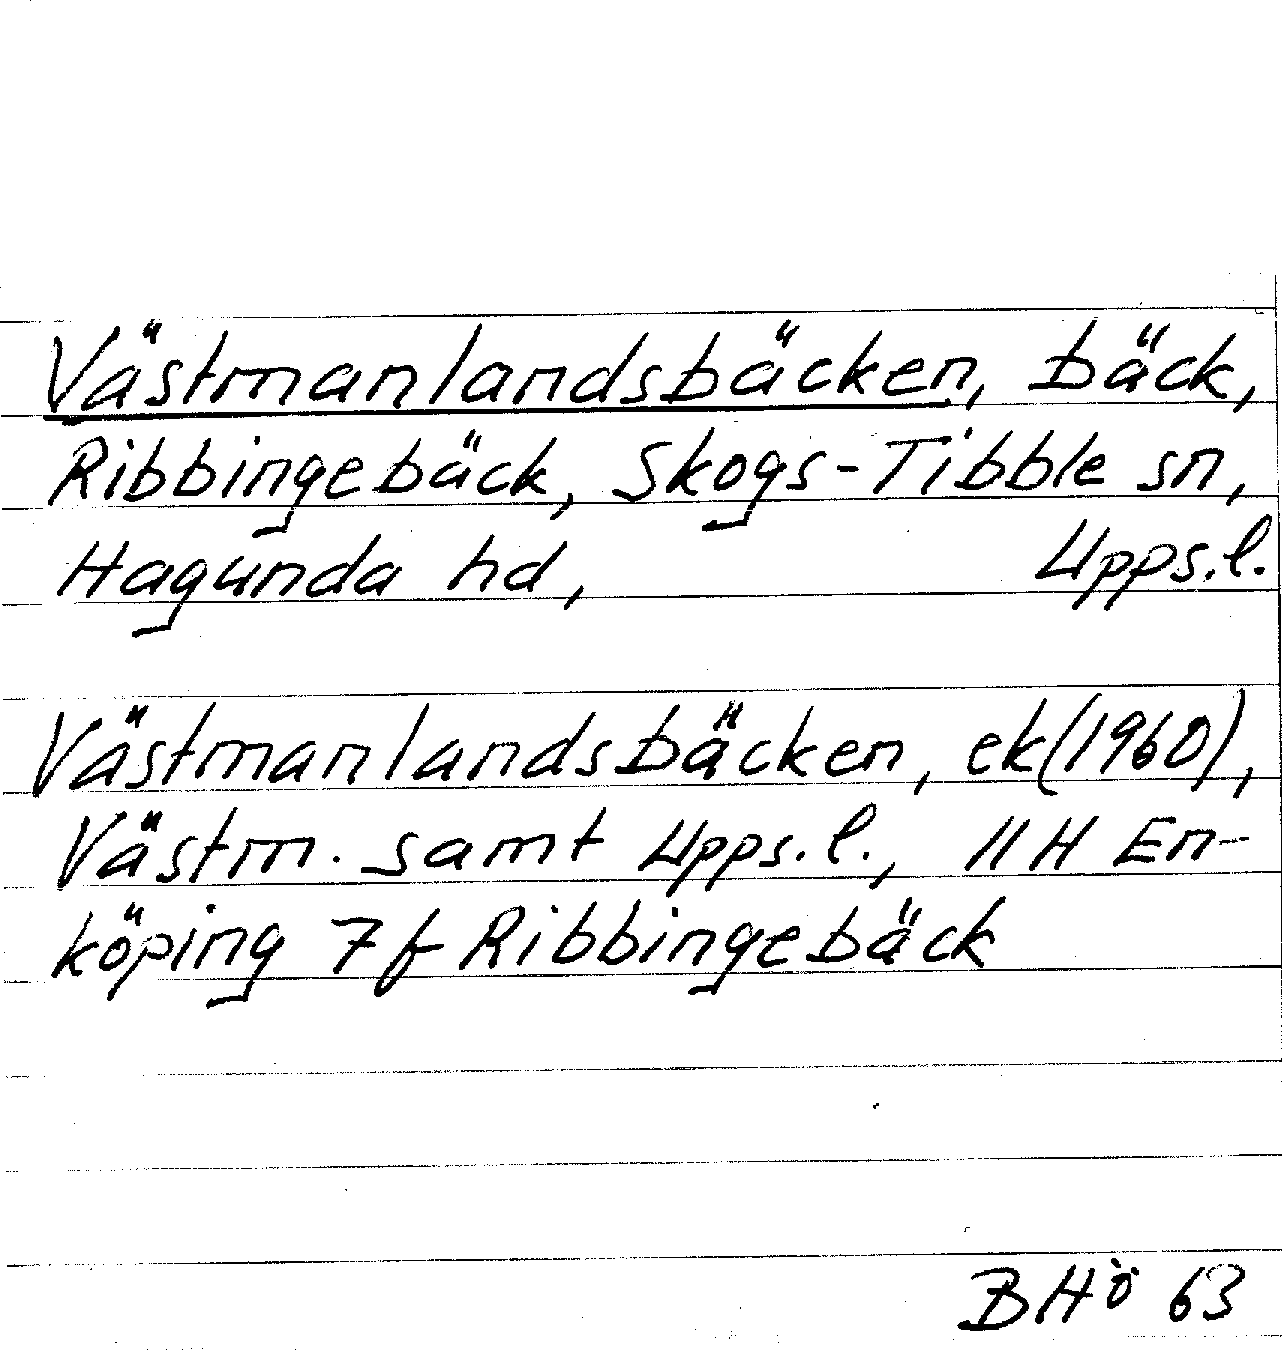 Västmanlandsbäcken, bäck,
Ribbingebäck, Skogs-Tibble sn,
Hagunda hd, Upps.l.
Västmanlandsbäcken, ek(1960),
Västm. samt Upps.l., 11H En-
köping 7f Ribbingebäck
BHö 63